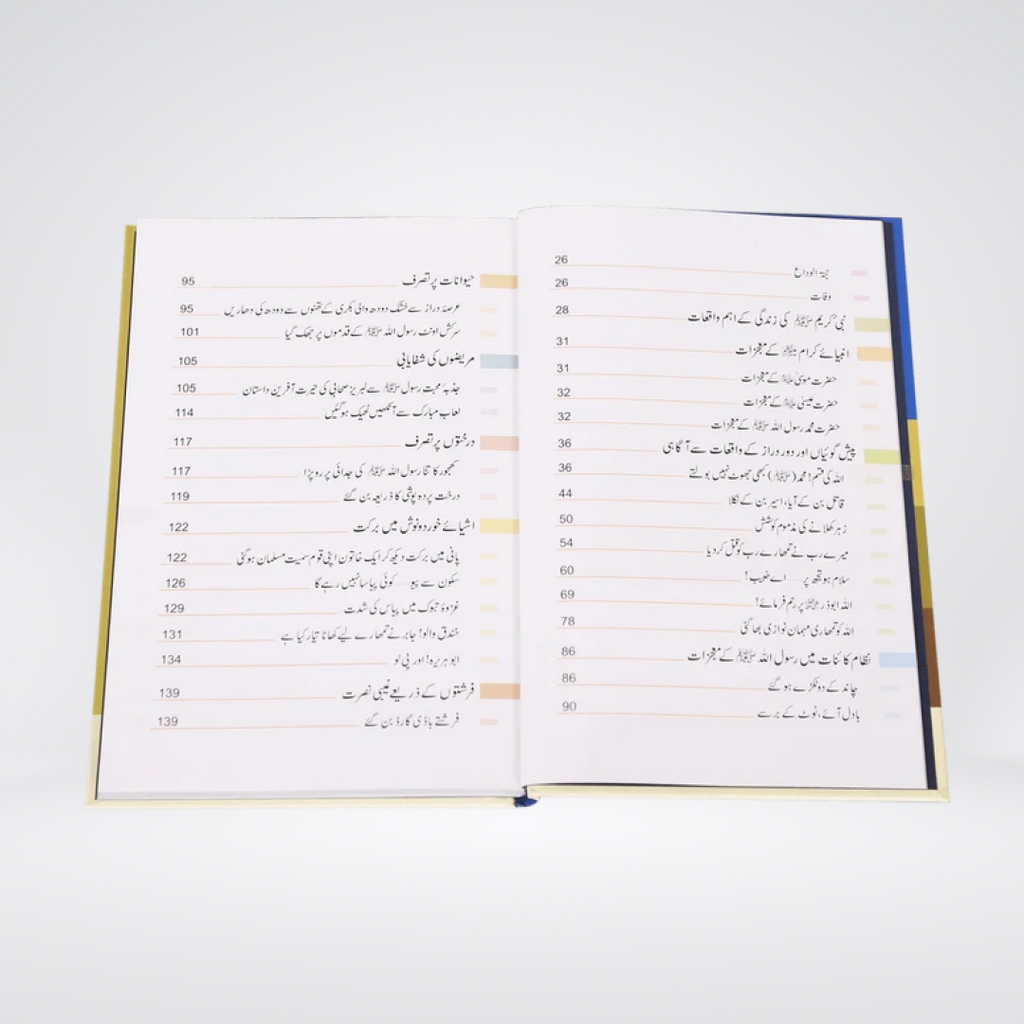 حجۃ الوداع 26
وفات 26
نبی کریم ﷺ کی زندگی کے اہم واقعات 28
انبیائے کرام علیہم السلام کے معجزات 31
حضرت موسیٰ علیہ السلام کے معجزات 31
حضرت عیسیٰ علیہ السلام کے معجزات 32
حضرت محمد رسول اللہ ﷺ کے معجزات 32
پیش گوئیاں اور دور دراز کے واقعات سے آگاہی 36
اللہ کی قسم! محمد (ﷺ) کبھی جھوٹ نہیں بولتے 36
قاتل بن کے آیا، اسیر بن کے نکلا 44
زہر کھلانے کی مذموم کوشش 50
میرے رب نے تمھارے رب کو قتل کر دیا 54
سلام ہو تجھ پر ---- اے خبیب! 60
اللہ ابوذر رضی اللہ عنہ پر رحم فرمائے! 69
اللہ کو تمھاری مہمان نوازی بھا گئی 78
نظام کائنات میں رسول اللہ ﷺ کے معجزات 86
چاند کے دو ٹکڑے ہو گئے 86
بادل آئے، ٹوٹ کے برسے 90
حیوانات پر تصرف 95
عرصۂ دراز سے خشک دودھ والی بکری کے تھنوں سے دودھ کی دھاریں 95
سرکش اونٹ رسول اللہ ﷺ کے قدموں پر جھک گیا 101
مریضوں کی شفایابی 105
جذبۂ محبت رسول ﷺ سے لبریز صحابی کی حیرت آفرین داستان 105
لعاب مبارک سے آنکھیں ٹھیک ہو گئیں 114
درختوں پر تصرف 117
کھجور کا تنا رسول اللہ ﷺ کی جدائی پر رو پڑا 117
درخت پردہ پوشی کا ذریعہ بن گئے 119
اشیائے خورد و نوش میں برکت 122
پانی میں برکت دیکھ کر ایک خاتون اپنی قوم سمیت مسلمان ہو گئی 122
سکون سے پیو --- کوئی پیاسا نہیں رہے گا 126
غزوۂ تبوک میں پیاس کی شدت 129
خندق والو! جابر نے تمھارے لیے کھانا تیار کیا ہے 131
ابو ہریرہ! اور پی لو 134
فرشتوں کے ذریعے غیبی نصرت 139
فرشتے باڈی گارڈ بن گئے 139